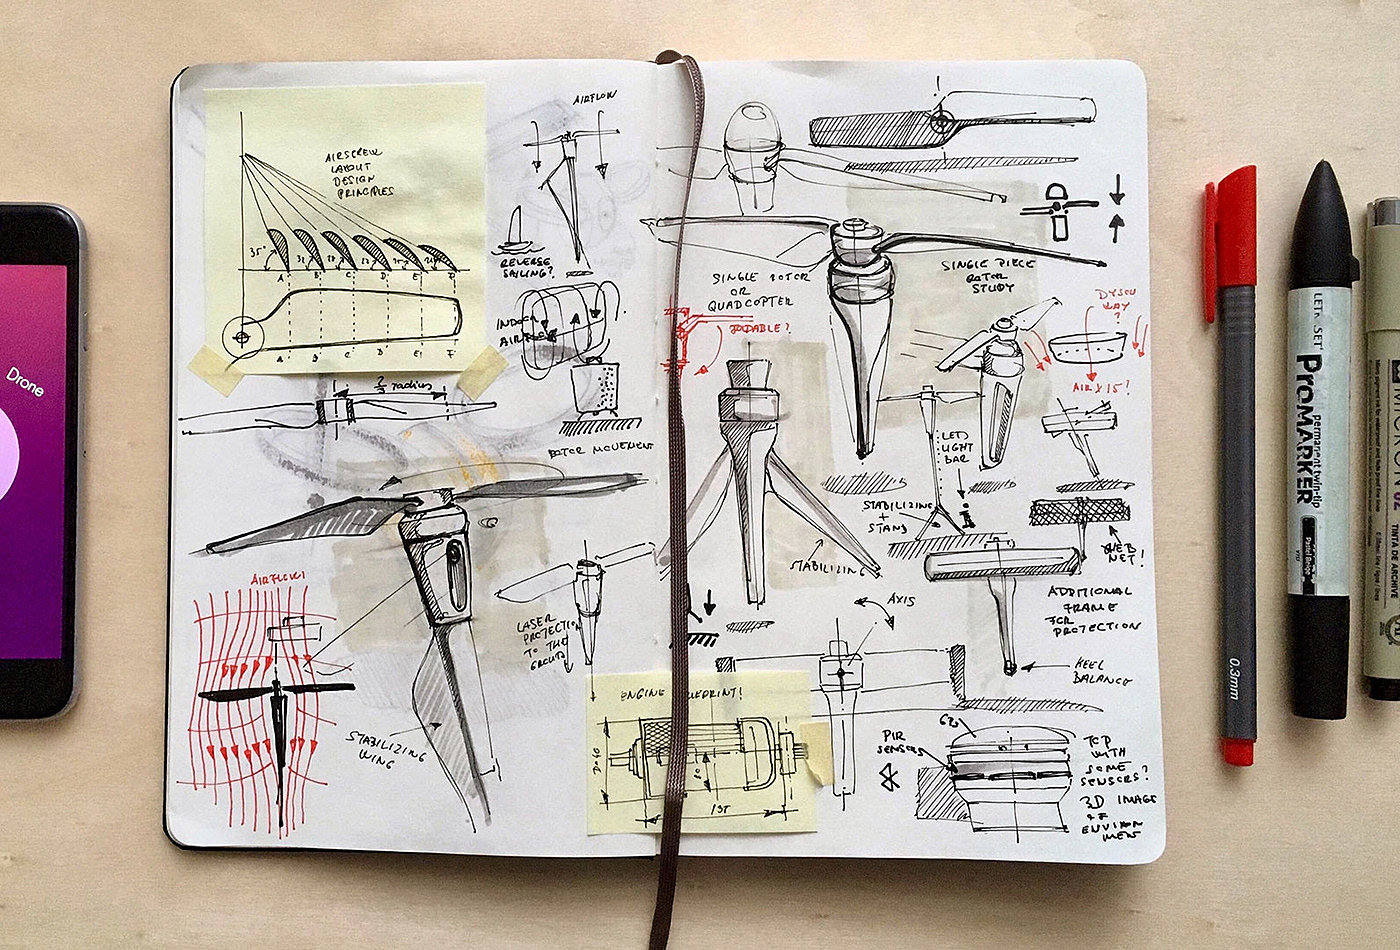 Drone
AIRSCREW
LAYOUT
DESIGN
PRINCIPLES
35°
A B C D E F
A B C D E F
2/3 radius
AIRFLOW
REVERSE
SAILING?
INDOOR
ROTOR MOVEMENT
AIRFLOW
STABILIZING
WING
LASER
PROTECTION
TO THE
GROUND
SINGLE ROTOR
OR
QUADCOPTER
FOLDABLE?
SINGLE PIECE
ROTOR
STUDY
DYSON
WAY
?
LED
LIGHT
BAR
STABILIZING
+
STAND
STABILIZING
WEB
NET!
ADDITIONAL
FRAME
FOR
PROTECTION
AXIS
KEEL
BALANCE
ENGINE BLUEPRINT!
135
PIR
SENSORS
TOP
WITH
SOME
SENSORS?
3D IMAGE
OF
ENVIRON
MENT
0.3mm
LETRASET
PROMARKER
permanent twin-tip